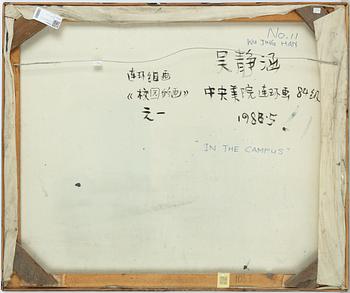 No.11
WU JING HAN
吴静涵
连环组画
《校园组画》
之一
中央美院 连环画 84级
1988.5
"IN THE CAMPUS"